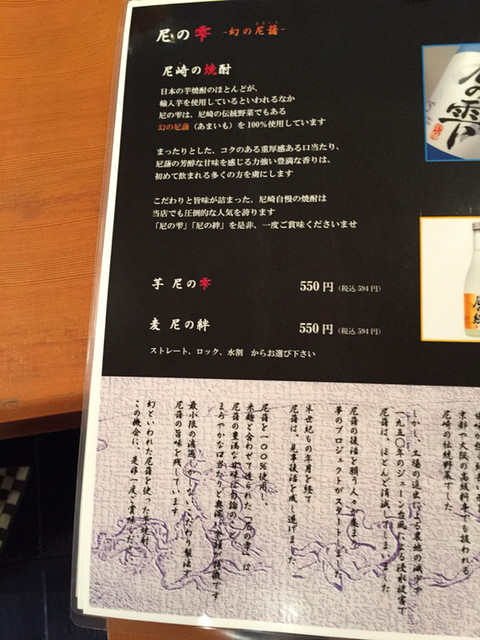 尼の雫 -幻の尼藷-
あまいも
尼崎の焼酎
日本の芋焼酎のほとんどが、
輸入芋を使用しているといわれるなか
尼の雫は、尼崎の伝統野菜でもある
幻の尼藷（あまいも）を100%使用しています
まったりとした、コクのある重厚感ある口当たり、
尼藷の芳醇な甘味を感じる力強い豊満な香りは、
初めて飲まれる多くの方を虜にします
こだわりと旨味が詰まった、尼崎自慢の焼酎は
当店でも圧倒的な人気を誇ります
「尼の雫」「尼の絆」を是非、一度ご賞味くださいませ
芋 尼の雫 550円（税込594円）
麦 尼の絆 550円（税込594円）
ストレート、ロック、水割 からお選び下さい
尼の雫
京都や大阪の高級料亭でも扱われる
尼崎の伝統野菜でした
しかし、工場の進出による農地の減少や
一九五〇年のジェーン台風による浸水被害で
尼藷は、ほとんど消滅してしまいました
尼藷の復活を願う人々が集まり
夢のプロジェクトがスタートしました
半世紀もの年月を経て
尼藷は、見事復活を成し遂げました
尼藷を一〇〇%使用し、
米麹と合わせて造られた「尼の雫」は
まろやかな口当たりと奥深い
最小限の濾過しかしないこだわり製法で
尼藷の旨味を残しています
幻といわれた尼藷を使った
この機会に、是非一度ご賞味ください